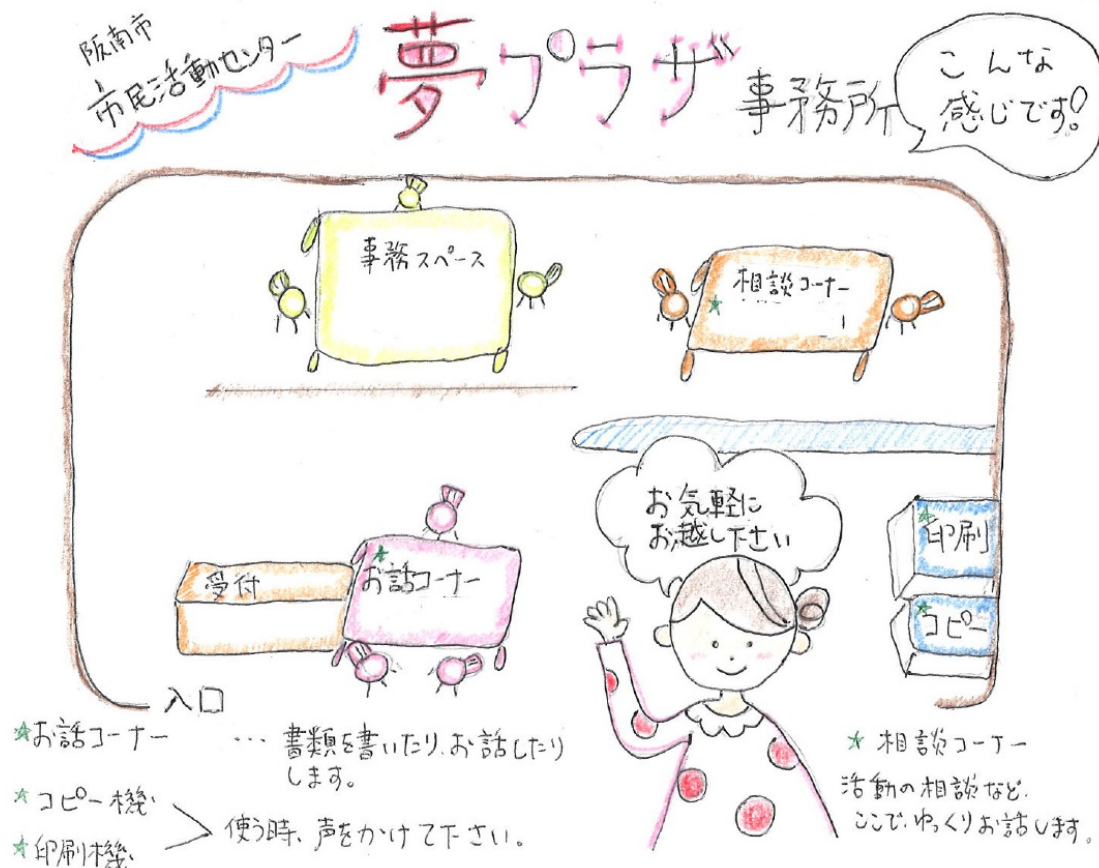 阪南市
市民活動センター
夢プラザ 事務所
こんな
感じです!
事務スペース
相談コーナー
お気軽に
お越し下さい
印刷
コピー
受付
お話コーナー
入口
お話コーナー … 書類を書いたり、お話したり
します。
コピー機
印刷機
使う時、声をかけて下さい。
相談コーナー
活動の相談など、
ここで、ゆっくりお話します。